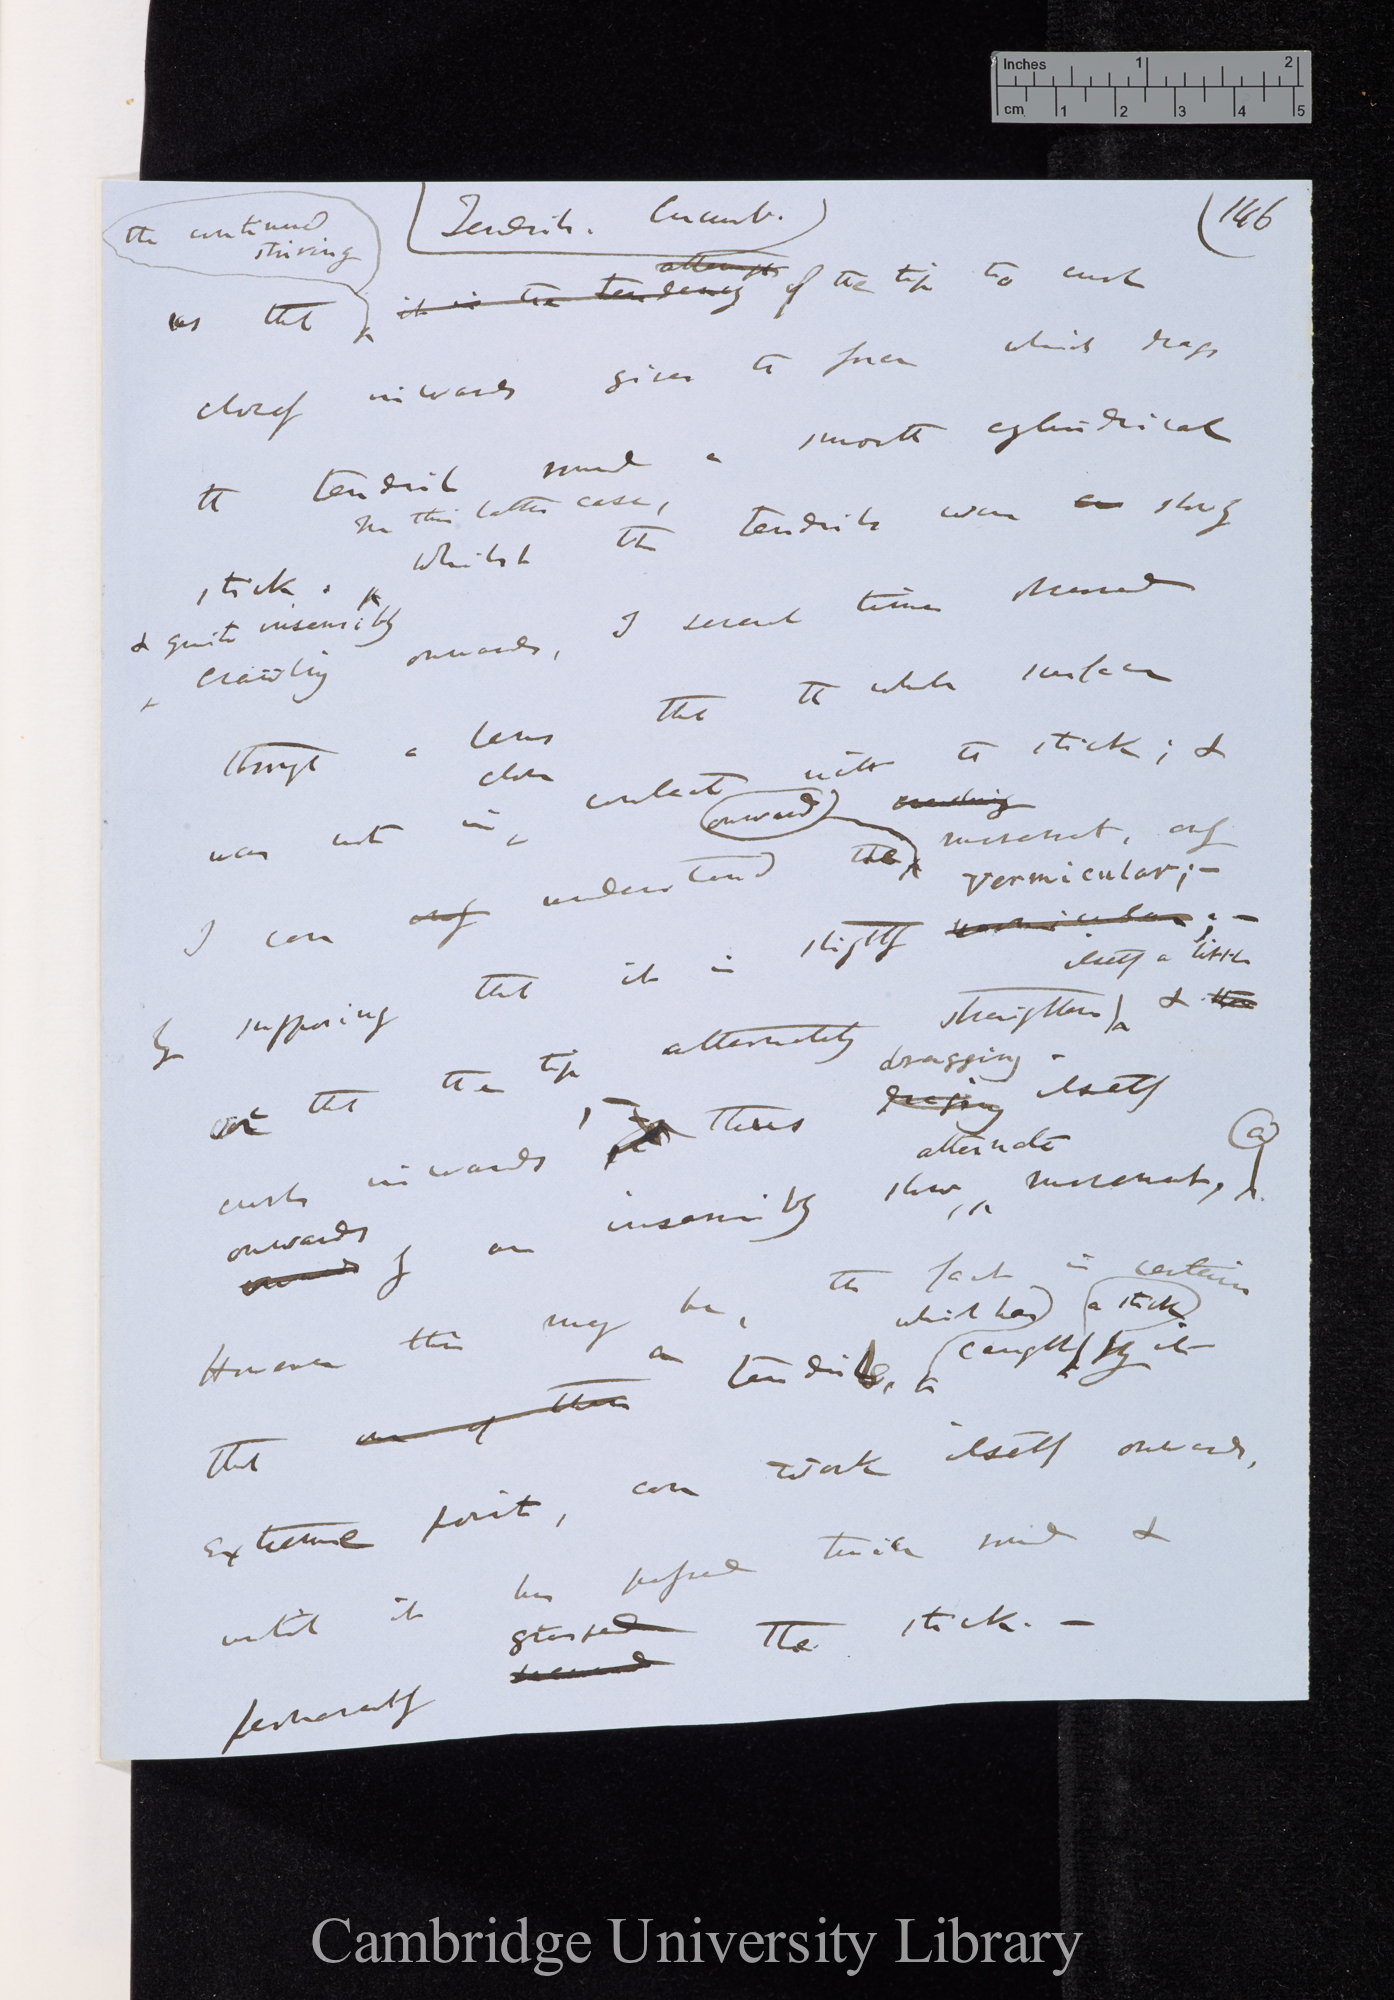 Inches 1 2
cm 1 2 3 4 5
Tendrils. Cucurb.
(146
the continued
striving
attempt
as that it is the tendency of the tip to curl
closely inwards gives the force which drags
the tendril round a smooth cylindrical
In this latter case,
stick. whilst the tendrils was slowly
& quite insensibly
crawling onwards, I several times observed
through a lens that the whole surface
close
was not in contact with the stick; &
onward crawling
I can only understand the movement, only
vermicular;—
by supposing that it is slightly vermicular;—
itself a little
or that the tip alternately straightens & then
dragging
curls inwards, thus itself
onwards alternate
by an insensibly slow, movement,
a
However this may be, the fact is certain
which has a stick
that one of these a tendril, caught by its
extreme point, can work itself onwards,
until it has passed twice round &
grasped
permanently the stick.—
Cambridge University Library